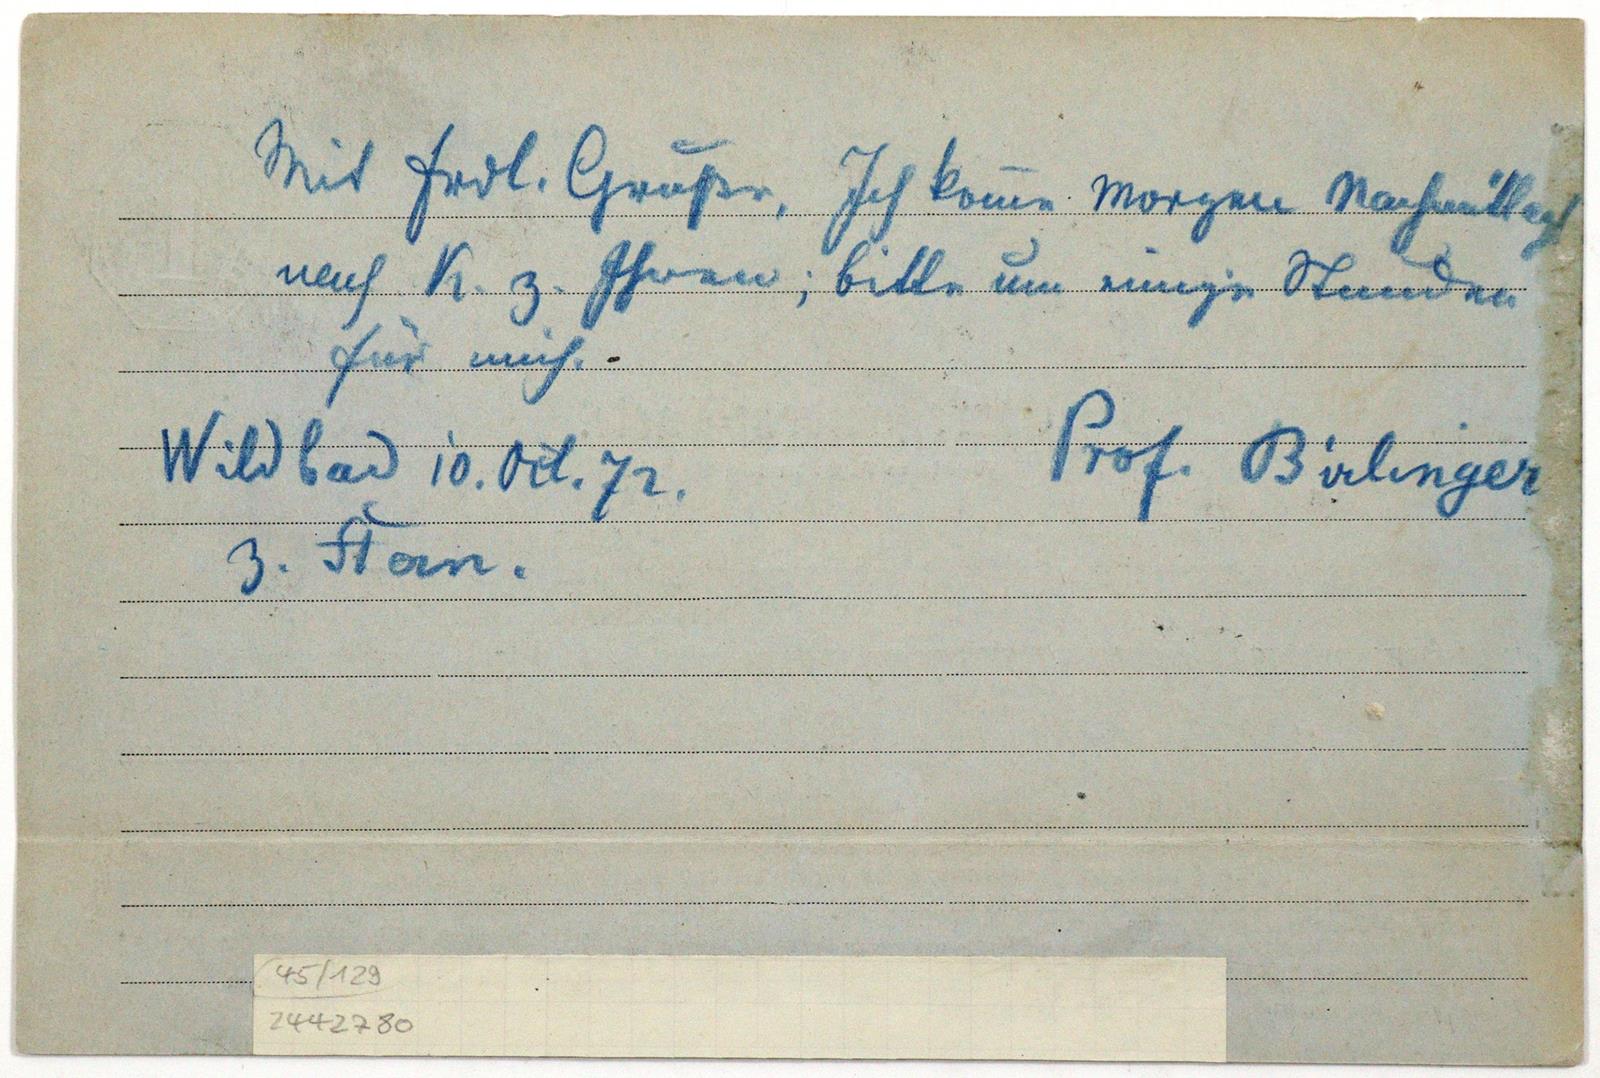 Mit frdl. Grüßen. Ich kom̅e morgen Nachmittag
nach K. z. Ihnen; bitte um einige Stunden
für mich.
Wildbad 10. Oct. 72. Prof. Birlinger
z.
45/129
2442780